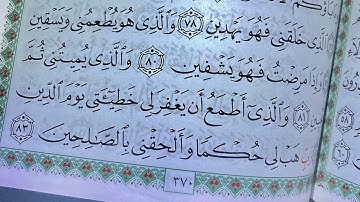 الَّذِى خَلَقَنِى فَهُوَ يَهْدِينِ ٧٨ وَالَّذِى هُوَ يُطْعِمُنِى وَيَسْقِينِ
وَإِذَا مَرِضْتُ فَهُوَ يَشْفِينِ ٨٠ وَالَّذِى يُمِيتُنِى ثُمَّ
٨١ وَالَّذِىٓ أَطْمَعُ أَن يَغْفِرَ لِى خَطِيٓـَٔتِى يَوْمَ الدِّينِ
رَبِّ هَبْ لِى حُكْمًا وَأَلْحِقْنِى بِالصَّـٰلِحِينَ ٨٣
٣٧٠